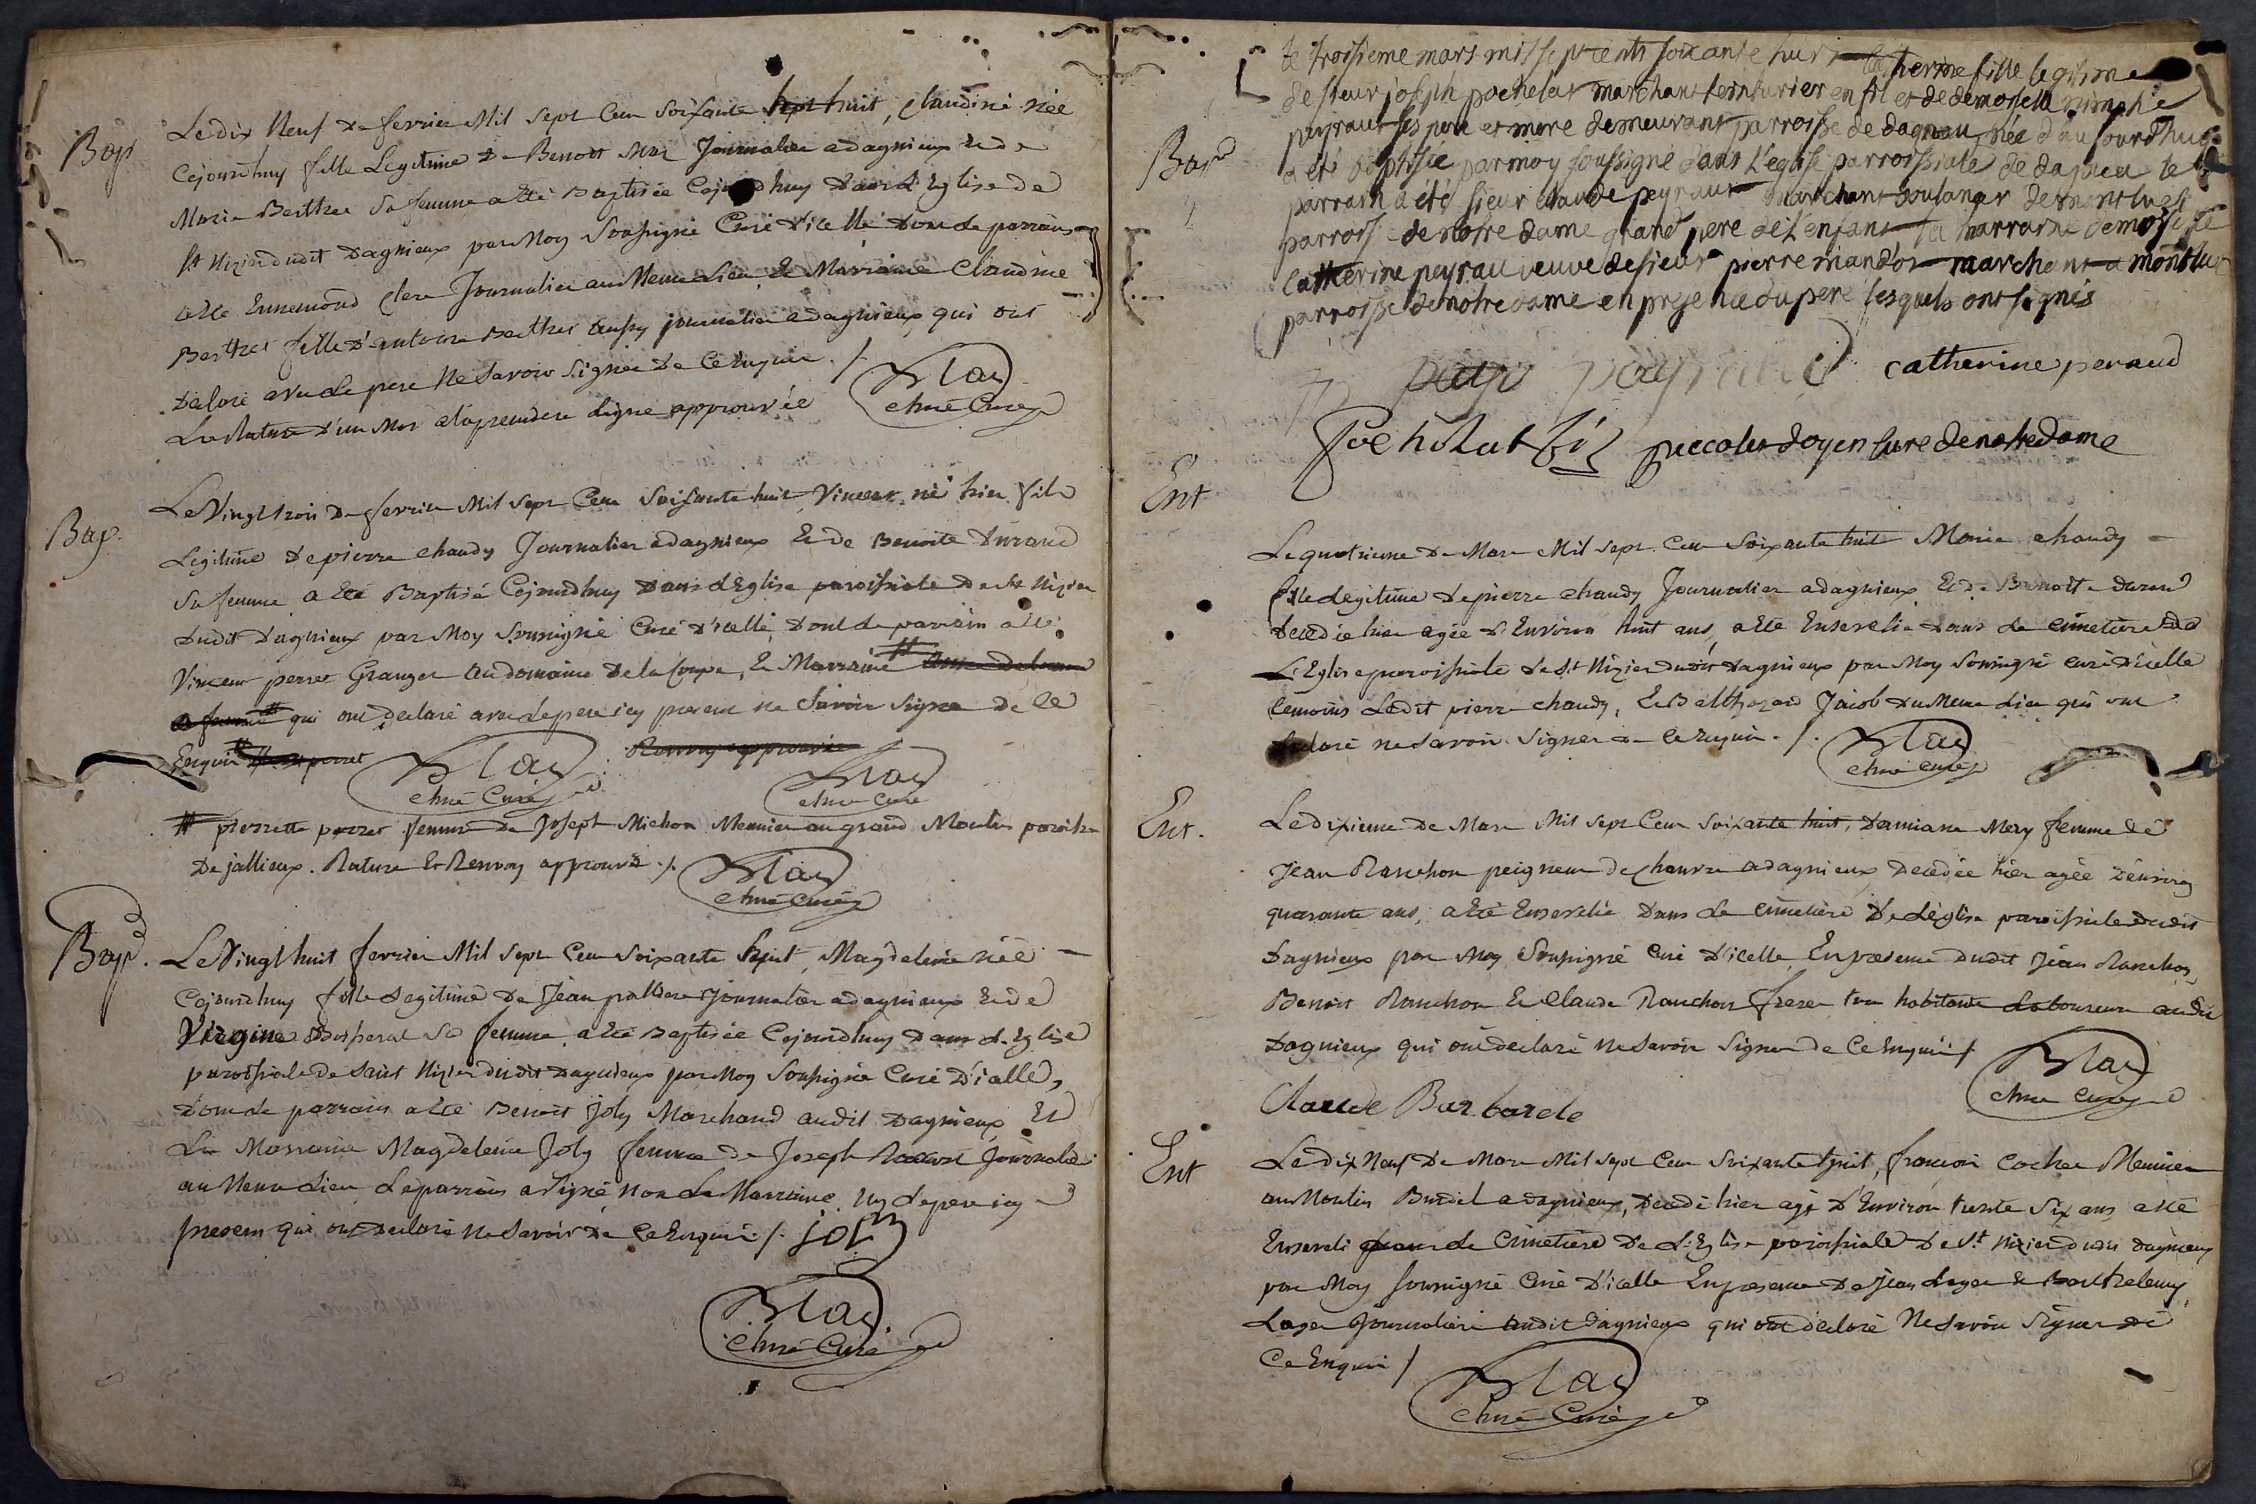 Bap
Le dix Neuf De fevrier Mil Sept Cent Soixante huit, Claudine née
Cejourdhuy fille Legitime De Benoit Journalier a dagnieux Et de
Marie Berthet Sa femme a Eté Baptisée Cejourdhuy Dans L'Eglise de
St Nizier dudit Dagnieux par Moy Soussigné Curé d'icelle Dont le parrain
a Eté Ennemond Clere Journalier au Meme Lieu, Et Marraine Claudine
Berthet fille D'antoine Berthet aussy journalier a dagnieux qui ont
Déclaré avec le pere Ne Savoir Signer De Ce Enquis ./.
La Rature d'un Mot a la premiere Ligne approuvée
curé
Bap.
Le Vingt trois De fevrier Mil Sept Cent Soixante huit Vincent né hier fils
Legitime De pierre chaudy Journalier a dagnieux Et de Benoite Durand
Sa femme a Eté Baptisé Cejourdhuy Dans L'Eglise paroissiale De St Nizier
Dudit Dagnieux par Moy Soussigné Curé D'icelle, Dont Le parrain a Eté
Vincent perret Granger au domaine De la Coupe, Et Marraine #
qui ont declaré avec le pere icy present ne Savoir Signer De Ce
Enquis
curé
curé
# pierrette perret femme De Joseph Michon Meunier au grand Moulin paroisse
De jallieux. Rature Et Renvoy approuvés ./.
curé
Bapt.
Le Vingt huit fevrier Mil Sept Cent Soixante huit, Magdeleine née
Cejourdhuy fille Legitime De Jean Journalier a dagnieux Et de
Virginie Sa femme, a Eté Baptisée Cejourdhuy Dans L'Eglise
paroissiale De Saint Nizier dudit Dagnieux par Moy Soussigné Curé D'icelle,
Dont Le parrain a Eté Benoit Joly Marchand audit Dagnieux Et
La Marraine Magdeleine Joly femme De Joseph Journalier
au Meme Lieu, Le parrain a Signé Non La Marraine Ny Le pere icy
present qui ont Declaré Ne Savoir De Ce Enquis ./. joly
curé
Bapt
Le troisieme mars mil sept cents soixante huit catherine fille legitime
de sieur joseph pochelat marchant teinturier en fil et de demoiselle
peyraut ses pere et mere demeurant parroisse de dagneu née d'aujourdhui
a été baptisée par moy soussigné dans l'eglise parroissiale de dagneu le
parrain a été sieur claude peyraut marchant boulanger de montluel
parroisse de notre dame grand pere de l'enfant la marraine demoiselle
catherine peyrau veuve de sieur pierre mandot marchant a montluel
parroisse de notre dame en presence du pere lesquels ont signés
catherine peraud
pochelat fils doyen cure de notre dame
Ent
Le quatrieme De Mars Mil Sept Cent Soixante huit Marie chaudy
fille Legitime De pierre chaudy Journalier a dagnieux Et De Benoite durand
Decedée hier agée D'Environ huit ans, a Eté Ensevelie dans Le Cimetiere De
L'Eglise paroissiale De St Nizier dudit Dagnieux par Moy Soussigné curé D'icelle
temoins Ledit pierre chaudy, Et Balthazard Jacob du Meme Lieu qui ont
Declaré ne Savoir Signer De Ce Enquis ./.
curé
Ent.
Le dixieme De Mars Mil Sept Cent Soixante huit, Damiane Mery femme De
Jean Ranchon peigneur De Chanvre a dagnieux, Decedée hier agée D'environ
quarante ans, a Eté Ensevelie Dans Le Cimetiere De L'église paroissiale Dudit
Dagnieux par Moy Soussigné Curé D'icelle En presence dudit Jean Ranchon,
Benoit Ranchon Et Claude Ranchon frere, tous habitants Laboureurs audit
Dagnieux qui ont declaré Ne Savoir Signer De Ce Enquis ./.
curé
Claude Barbarde
Ent
Le dix Neuf De Mars Mil Sept Cent Soixante huit, françois Cochet Meunier
au Moulin Burdel a dagnieux, Decedé hier agé D'Environ trente Six ans, a Eté
Enseveli dans Le Cimetiere De L'Eglise paroissiale De St Nizier dudit Dagnieux
par Moy Soussigné Curé D'icelle En presence De Jean Loyer Et Barthelemy
Loyer Journaliers audit Dagnieux qui ont déclaré Ne Savoir Signer De
Ce Enquis /.
curé